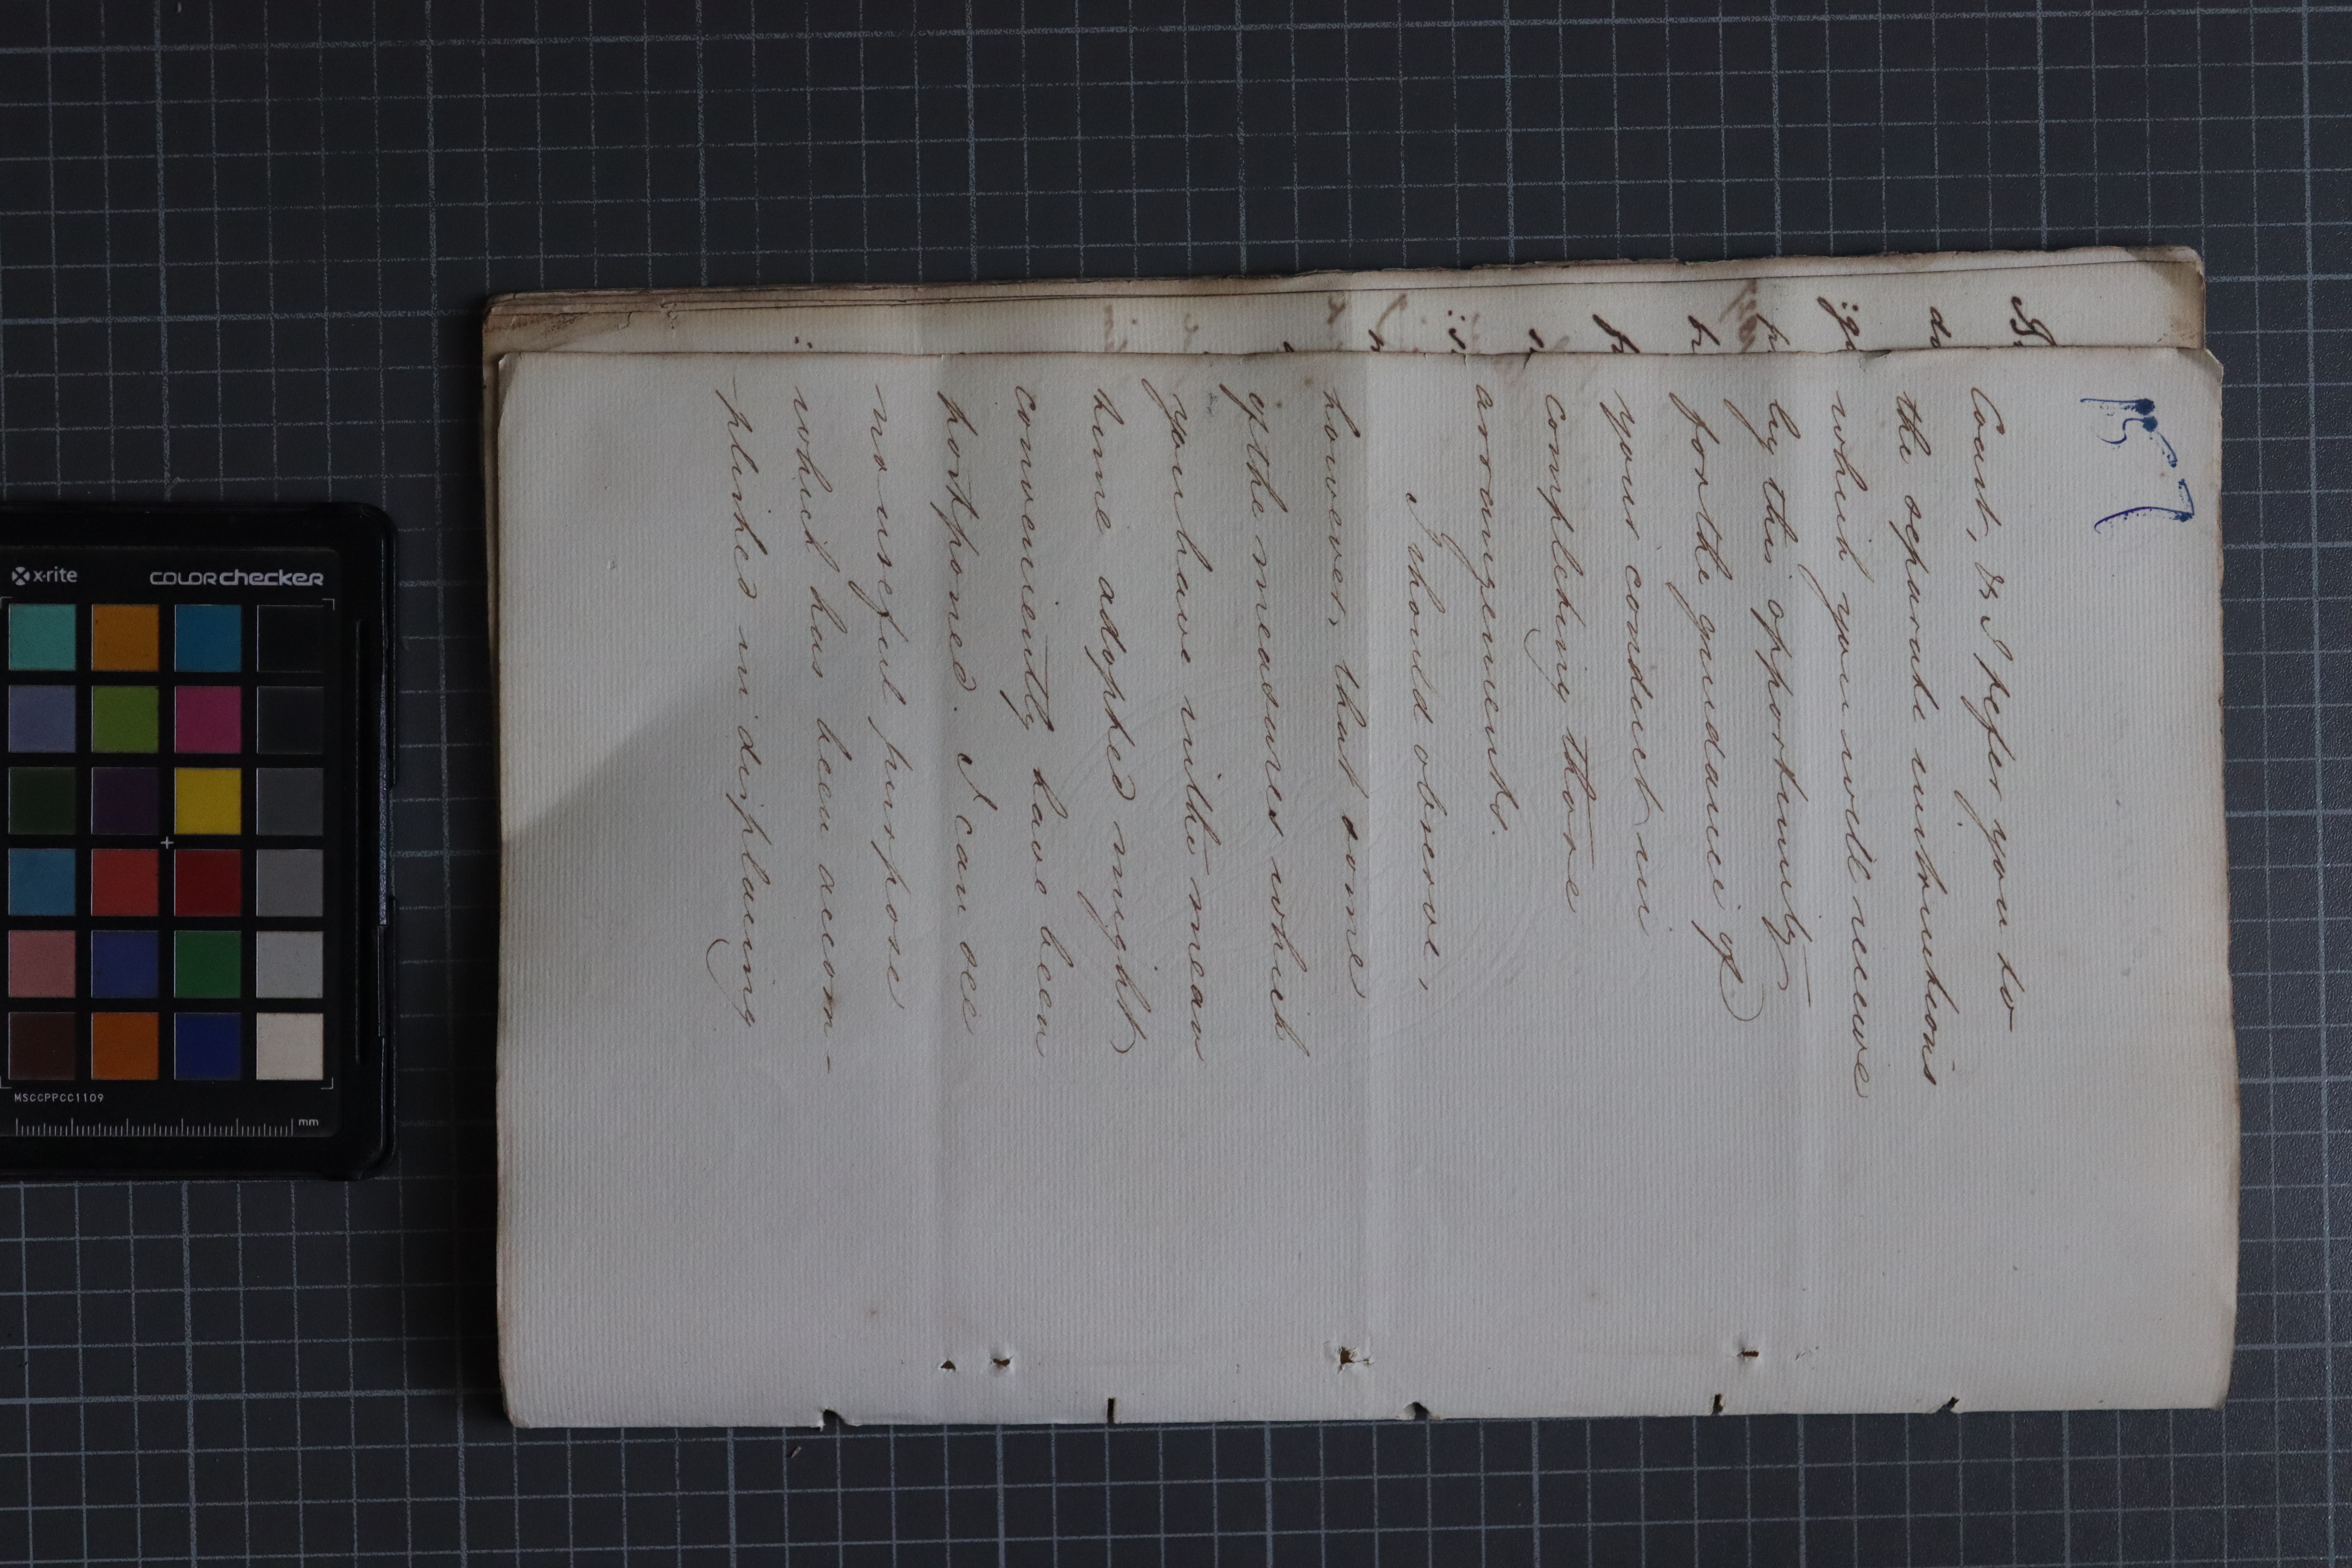 157
Coast, & I refer you to
the separate instructions
which you will receive
by this opportunity
for the guidance of
your conduct in
completing those
arrangements.
I should observe,
however, that some
of the measures which
you have in the mean
time adopted might
conveniently have been
postponed. I can see
no useful purpose
which has been accom-
plished in displacing
x-rite
colorchecker
MSCCPPCC1109
mm